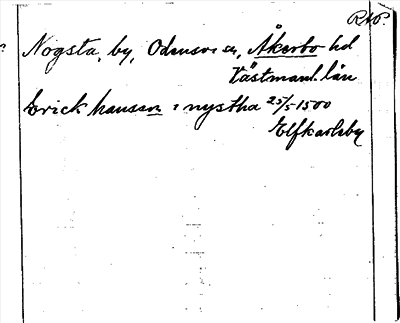 RAP.
Nogsta, by, Odensvi sn, Åkerbo hd
Västmanl. län
Erick hansson i nystha 25/5 1500
Elfkarleby